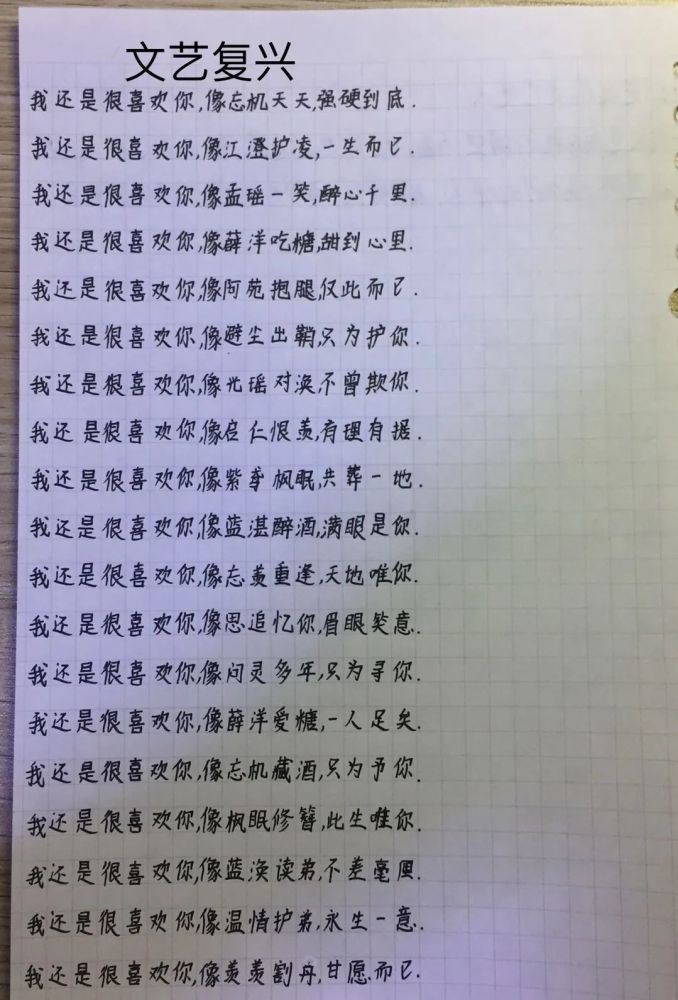 文艺复兴
我还是很喜欢你,像忘机天天,强硬到底.
我还是很喜欢你,像江澄护凌,一生而已.
我还是很喜欢你,像孟瑶一笑,醉心千里.
我还是很喜欢你,像薛洋吃糖,甜到心里.
我还是很喜欢你,像阿苑抱腿,仅此而已.
我还是很喜欢你,像避尘出鞘,只为护你.
我还是很喜欢你,像光瑶对涣,不曾欺你.
我还是很喜欢你,像启仁恨羡,有理有据.
我还是很喜欢你,像紫弯枫眠,共葬一地.
我还是很喜欢你,像蓝湛醉酒,满眼是你.
我还是很喜欢你,像忘羡重逢,天地唯你.
我还是很喜欢你,像思追忆你,眉眼笑意.
我还是很喜欢你,像问灵多年,只为寻你.
我还是很喜欢你,像薛洋爱糖,一人足矣.
我还是很喜欢你,像忘机藏酒,只为予你.
我还是很喜欢你,像枫眠修簪,此生唯你.
我还是很喜欢你,像蓝涣读弟,不差毫厘.
我还是很喜欢你,像温情护弟,永生一意.
我还是很喜欢你,像羡羡割丹,甘愿而已.